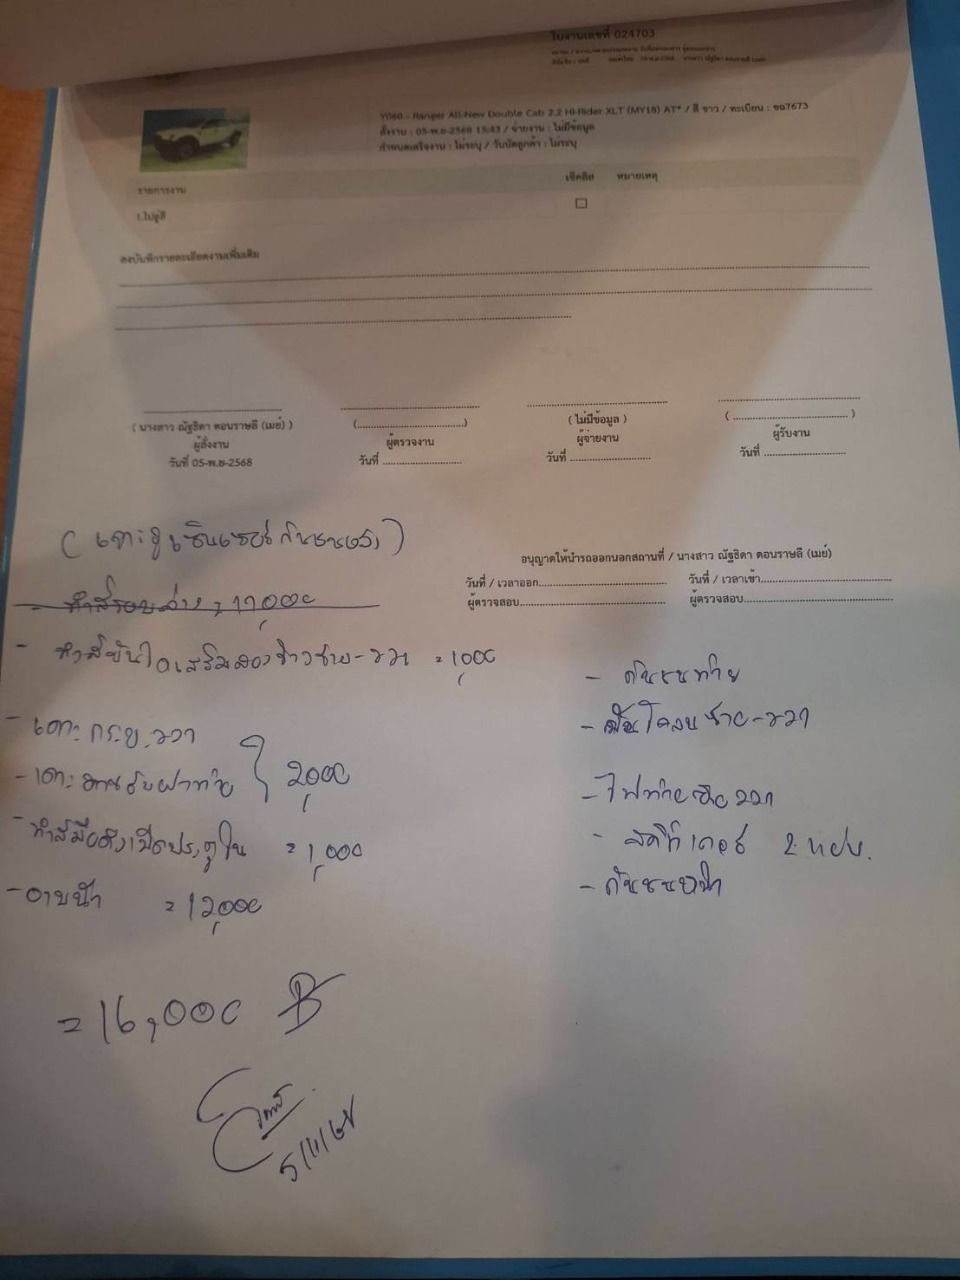 ใบงานเลขที่ 024703
Y060 - Ranger All-New Double Cab 2.2 Hi-Rider XLT (MY18) AT* / สี ขาว / ทะเบียน : ขฉ7673
สั่งงาน : 05-พ.ย-2568 15:43 / จ่ายงาน : ไม่มีข้อมูล
กำหนดเสร็จงาน : ไม่ระบุ / วันนัดลูกค้า : ไม่ระบุ
รายการงาน เช็คลิส หมายเหตุ
1.ไปอู่สี
ลงบันทึกรายละเอียดงานเพิ่มเติม
( นางสาว ณัฐธิดา ดอนราษลี (เมย์) ) (..............................) ( ไม่มีข้อมูล ) ( ................................ )
ผู้สั่งงาน ผู้ตรวจงาน ผู้จ่ายงาน ผู้รับงาน
วันที่ 05-พ.ย-2568 วันที่ ...................... วันที่ ...................... วันที่ ......................
อนุญาตให้นำรถออกนอกสถานที่ / นางสาว ณัฐธิดา ดอนราษลี (เมย์)
วันที่ / เวลาออก................................... วันที่ / เวลาเข้า...................................
ผู้ตรวจสอบ............................................... ผู้ตรวจสอบ.........................................
( เจาะรูเซ็นเซอร์กันชนหลัง )
- ทำสีรอบล่าง = 17,000
- ทำสีบันไดเสริมสองข้างซ้าย-ขวา = 1,000
- เคาะ กระบะ ขวา
- เคาะ ฝาท้าย } 2,000
- ทำสีมือดึงเปิดประตูใน = 1,000
- อาบน้ำ = 12,000
= 16,000 ฿
5/11/68
- กันชนท้าย
- ซ้าย-ขวา
- ไฟท้าย ขวา
- สติ๊กเกอร์ 2
- กันชนหน้า